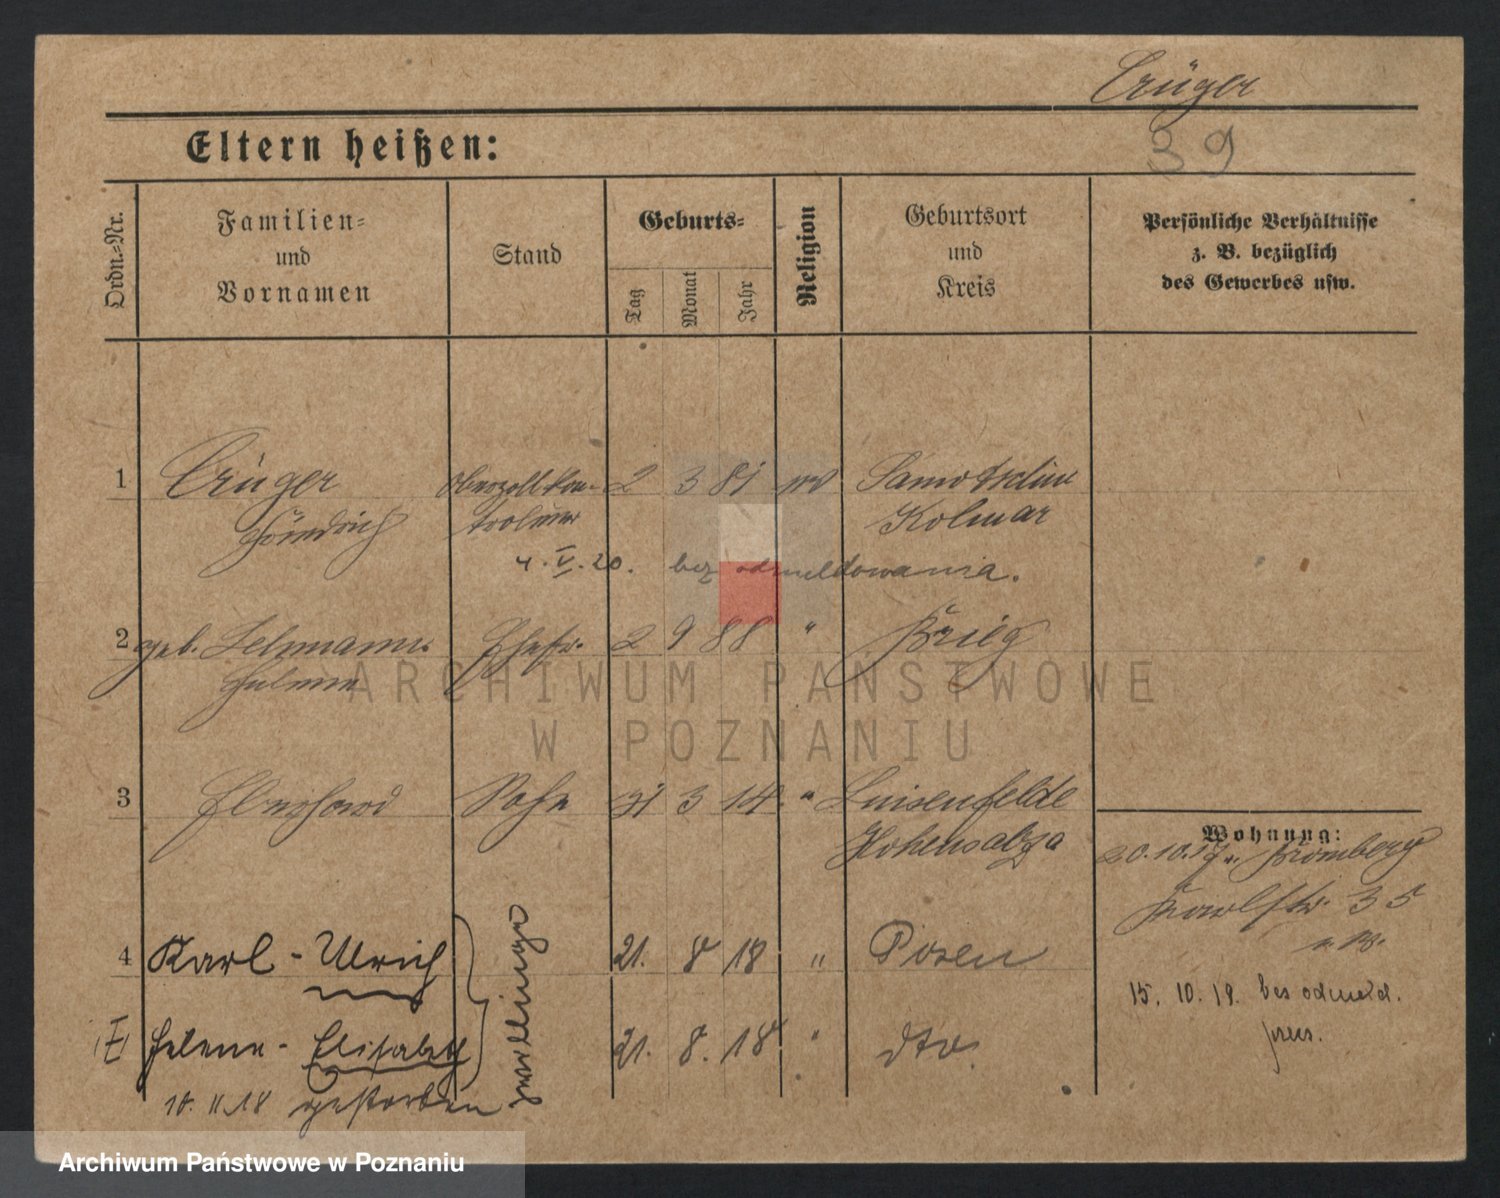 Crüger
39
Eltern heißen:
Ordn.-Nr.
Familien-
und
Vornamen
Stand
Geburts-
Tag
Monat
Jahr
Religion
Geburtsort
und
Kreis
Persönliche Verhältnisse
z. B. bezüglich
des Gewerbes usw.
1 Crüger Oberzollkon- 2 3 81 Samotschin
Friedrich troleur Kolmar
4. V. 20. bez odmeldowania.
2 geb. Lehmann Ehefr. 2 9 88 " Brieg
Helene
3 Eberhard Sohn 31 3 14 " Luisenfelde
Hohensalza
Wohnung:
20.10.17 v. Bromberg
Karlstr. 35
4 Karl - Ulrich 21. 8 18 " Posen
15. 10. 19. bez odmeld.
Helene - Elisabeth 21. 8. 18 " dto.
Zwillinge
10. 11. 18 gestorben
ARCHIWUM PAŃSTWOWE
W POZNANIU
Archiwum Państwowe w Poznaniu